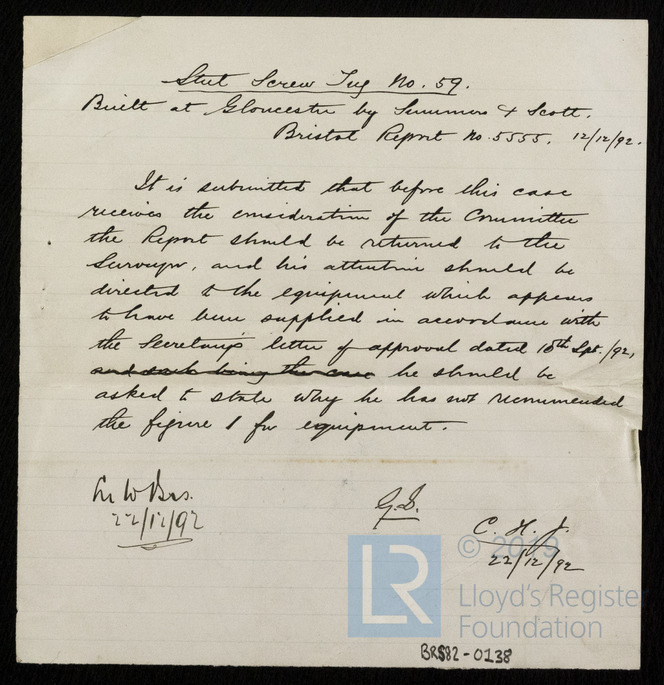 Steel Screw Tug No. 59.
Built at Gloucester by Summers & Scott.
Bristol Report No. 5555. 12/12/92.
It is submitted that before this case
receives the consideration of the Committee
the Report should be returned to the
Surveyor, and his attention should be
directed to the equipment which appears
to have been supplied in accordance with
the Secretary's letter of approval dated 10th Sept. /92,
and such being the case he should be
asked to state why he has not recommended
the figure 1 for equipment.
22/12/92
G.S.
C. H. J.
22/12/92
© 2019
LR
Lloyd's Register
Foundation
BRS82-0138